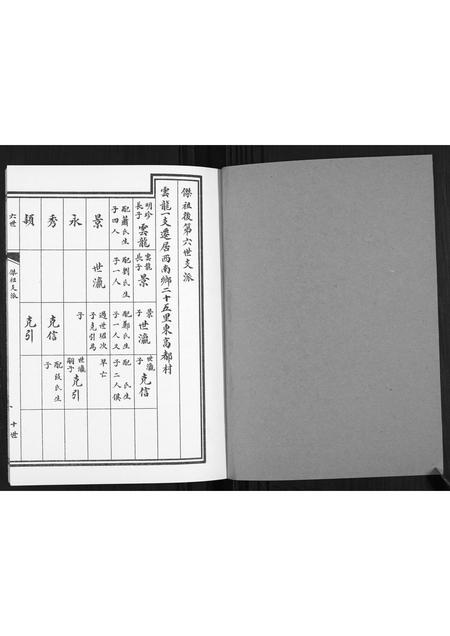 傑祖後第六世支派
雲龍一支遷居西南鄉二十五里東高都村
明珍長子 雲龍
雲龍長子 景
景子 世瀛
世瀛子 克信
配蕭氏生子四人
配劉氏生子一人
配鄭氏生子一人又
配 氏生子二人俱
景
世瀛
過世琚次子克引為
早亡
永
子
世瀛嗣子 克引
秀
克信
配段氏生子
穎
克引
六世
傑祖支派
十世